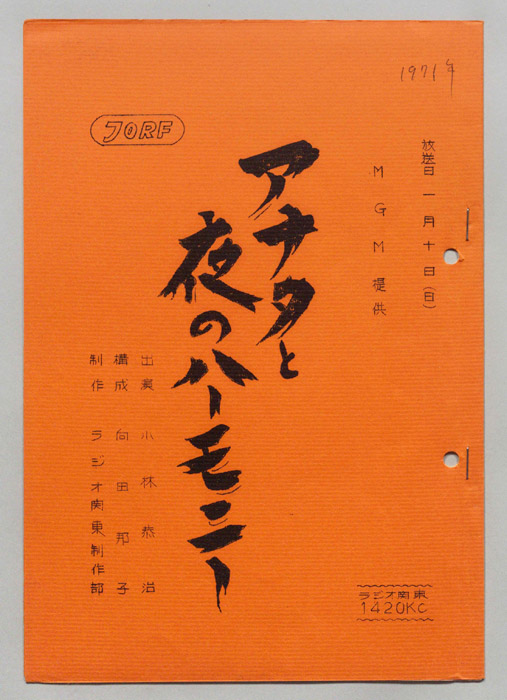 1971年
放送日 一月十日(日)
MGM提供
アナタと
夜のハーモニー
JORF
出演 小林恭治
構成 向田邦子
制作 ラジオ関東制作部
ラジオ関東
1420KC